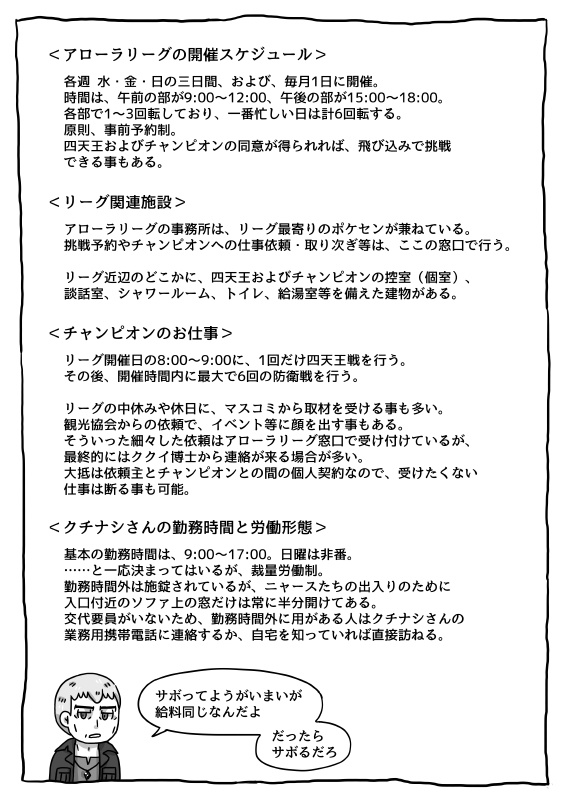 ＜アローラリーグの開催スケジュール＞
各週 水・金・日の三日間、および、毎月1日に開催。
時間は、午前の部が9:00～12:00、午後の部が15:00～18:00。
各部で1～3回転しており、一番忙しい日は計6回転する。
原則、事前予約制。
四天王およびチャンピオンの同意が得られれば、飛び込みで挑戦
できる事もある。
＜リーグ関連施設＞
アローラリーグの事務所は、リーグ最寄りのポケセンが兼ねている。
挑戦予約やチャンピオンへの仕事依頼・取り次ぎ等は、ここの窓口で行う。
リーグ近辺のどこかに、四天王およびチャンピオンの控室（個室）、
談話室、シャワールーム、トイレ、給湯室等を備えた建物がある。
＜チャンピオンのお仕事＞
リーグ開催日の8:00～9:00に、1回だけ四天王戦を行う。
その後、開催時間内に最大で6回の防衛戦を行う。
リーグの中休みや休日に、マスコミから取材を受ける事も多い。
観光協会からの依頼で、イベント等に顔を出す事もある。
そういった細々した依頼はアローラリーグ窓口で受け付けているが、
最終的にはククイ博士から連絡が来る場合が多い。
大抵は依頼主とチャンピオンとの間の個人契約なので、受けたくない
仕事は断る事も可能。
＜クチナシさんの勤務時間と労働形態＞
基本の勤務時間は、9:00～17:00。日曜は非番。
……と一応決まってはいるが、裁量労働制。
勤務時間外は施錠されているが、ニャースたちの出入りのために
入口付近のソファ上の窓だけは常に半分開けてある。
交代要員がいないため、勤務時間外に用がある人はクチナシさんの
業務用携帯電話に連絡するか、自宅を知っていれば直接訪ねる。
サボってようがいまいが
給料同じなんだよ
だったら
サボるだろ